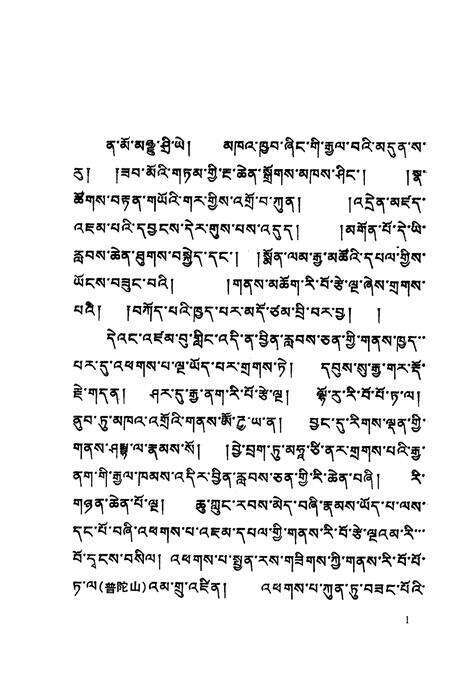 ན་མོ་མཉྫུ་ཤྲི་ཡེ། མཁའ་ཁྱབ་ཞིང་གི་རྒྱལ་བའི་མདུན་ས་
རུ། །ཟབ་མོའི་གཏམ་གྱི་ང་ཆེན་སྒྲོགས་མཁས་ཤིང་། །སྣ་
ཚོགས་བརྟན་གཡོའི་གར་གྱིས་འགྲོ་བ་ཀུན། །འདྲེན་མཛད་
འཇམ་པའི་དབྱངས་དེར་གུས་པས་འདུད། །མགོན་པོ་དེ་ཡི་
རླབས་ཆེན་ཐུགས་བསྐྱེད་དང་། །སྨོན་ལམ་རྒྱ་མཚོའི་དཔལ་གྱིས་
ཡོངས་བཟུང་བའི། །གནས་མཆོག་རི་བོ་རྩེ་ལྔ་ཞེས་གྲགས་
པའི། །བཀོད་པའི་ཁྱད་པར་མདོ་ཙམ་བྲི་བར་བྱ། །
དེའང་འཛམ་བུ་གླིང་འདི་ན་བྱིན་རླབས་ཅན་གྱི་གནས་ཁྱད་
པར་དུ་འཕགས་པ་ལྔ་ཡོད་པར་གྲགས་ཏེ། དབུས་སུ་རྒྱ་གར་རྡོ་
རྗེ་གདན། ཤར་དུ་རྒྱ་ནག་རི་བོ་རྩེ་ལྔ། ལྷོ་རུ་རི་བོ་པོ་ཏ་ལ།
ནུབ་ཏུ་མཁའ་འགྲོའི་གནས་ཨོ་རྒྱ་ཡ་ན། བྱང་དུ་རིགས་ལྡན་གྱི་
གནས་ཤམྦྷ་ལ་རྣམས་སོ། །བྱེ་བྲག་ཏུ་མཧཱ་ཙི་ནར་གྲགས་པའི་རྒྱ་
ནག་གི་རྒྱལ་ཁམས་འདིར་བྱིན་རླབས་ཅན་གྱི་རི་ཆེན་བཞི། རི་
གཉན་ཆེན་པོ་ལྔ། ཆུ་ཀླུང་རབས་མེད་བཞི་རྣམས་ཡོད་པ་ལས་
དང་པོ་བཞི་འཕགས་པ་འཇམ་དཔལ་གྱི་གནས་རི་བོ་རྩེ་ལྔའམ་རི་
བོ་དྭངས་བསིལ། འཕགས་པ་སྤྱན་རས་གཟིགས་ཀྱི་གནས་རི་བོ་པོ་
ཏ་ལ(普陀山)འམ་གྲུ་འཛིན། འཕགས་པ་ཀུན་ཏུ་བཟང་པོའི་
1